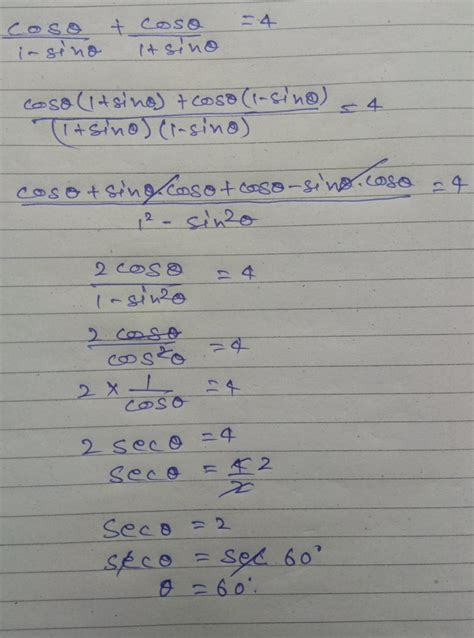 cosθ/1-sinθ + cosθ/1+sinθ =4
cosθ(1+sinθ) +cosθ(1-sinθ)/(1+sinθ)(1-sinθ) =4
cosθ+sinθ.cosθ+cosθ-sinθ.cosθ/1²-sin²θ =4
2cosθ/1-sin²θ =4
2cosθ/cos²θ =4
2×1/cosθ =4
2secθ=4
secθ=4/2 2
secθ=2
secθ = sec 60°
θ = 60°.